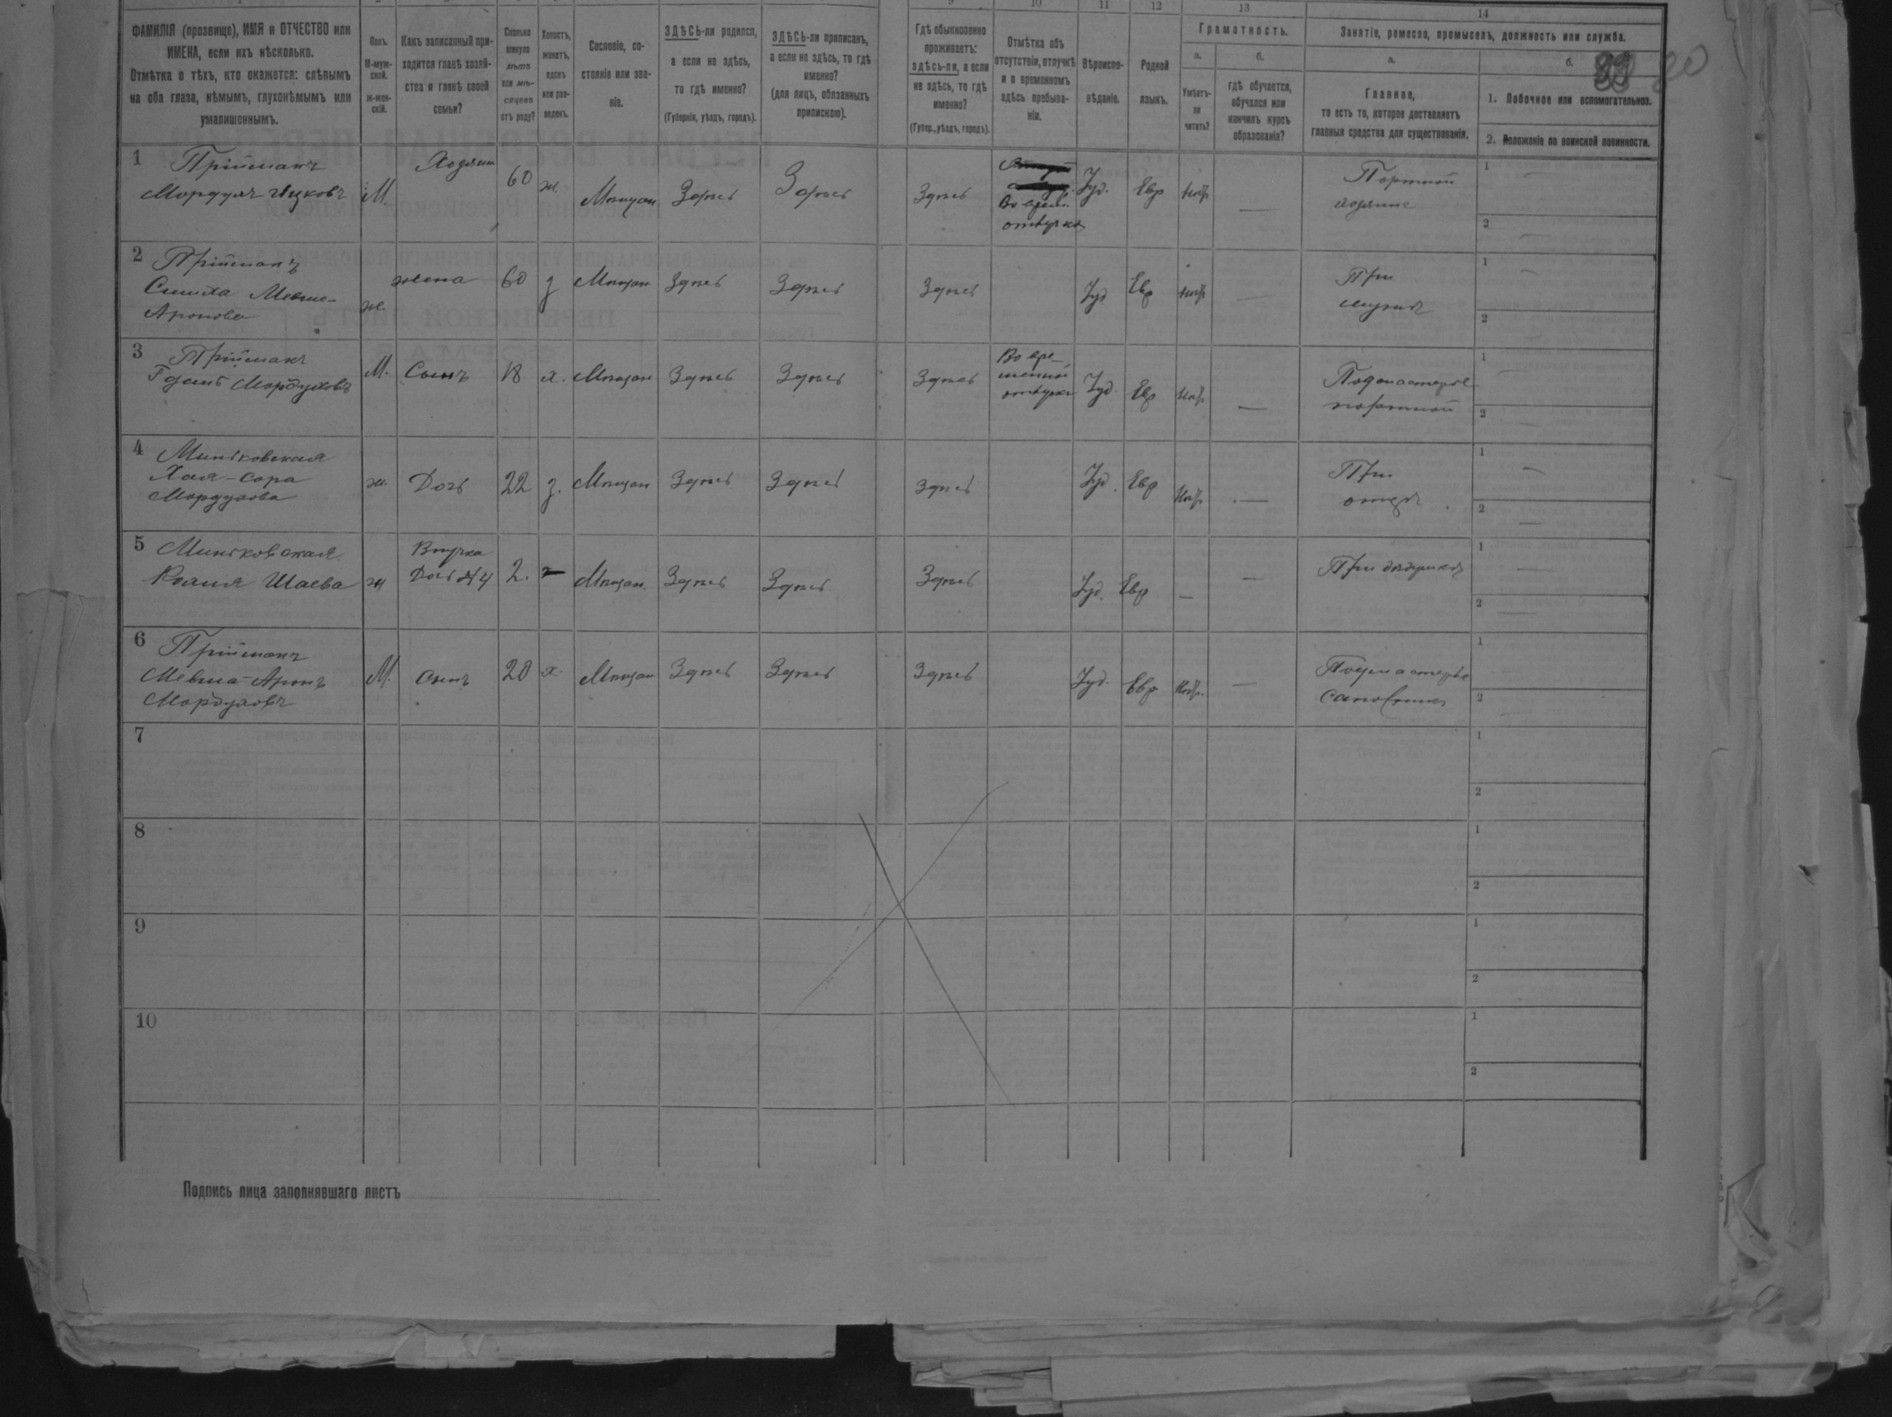 9 10 11 12 13 14
ФАМИЛІЯ (прозвище), ИМЯ и ОТЧЕСТВО или
ИМЕНА, если ихъ нѣсколько.
Отмѣтка о тѣхъ, кто окажется: слѣпымъ
на оба глаза, нѣмымъ, глухонѣмымъ или
умалишеннымъ.
Полъ.
М-муж-
ской.
ж-жен-
скій.
Какъ записанный при-
ходится главѣ хозяй-
ства и главѣ своей
семьи?
Сколько
минуло
лѣтъ
или мѣ-
сяцевъ
отъ роду?
Холостъ,
женатъ,
вдовъ
или раз-
веденъ.
Сословіе, со-
стояніе или зва-
ніе.
ЗДѢСЬ-ли родился,
а если не здѣсь,
то гдѣ именно?
(Губернія, уѣздъ, городъ).
ЗДѢСЬ-ли приписанъ,
а если не здѣсь, то гдѣ
именно?
(для лицъ, обязанныхъ
припискою).
Гдѣ обыкновенно
проживаетъ:
здѣсь-ли, а если
не здѣсь, то гдѣ
именно?
(Губер., уѣздъ, городъ).
Отмѣтка объ
отсутствіи, отлучкѣ
и о временномъ
здѣсь пребыва-
ніи.
Вѣроиспо-
вѣданіе.
Родной
языкъ.
Грамотность.
а.
Умѣетъ-
ли
читать?
б.
гдѣ обучается,
обучался или
кончилъ курсъ
образованія?
Занятіе, ремесло, промыселъ, должность или служба.
а.
Главное,
то есть то, которое доставляетъ
главныя средства для существованія.
б.
1. Побочное или вспомогательное.
2. Положеніе по воинской повинности.
20
1 Пріймакъ
Мордухъ Ицковъ
М. Хозяинъ 60 ж. Мѣщан Здѣсь Здѣсь Здѣсь
Во врем.
отлучкѣ
Іуд. Евр негр — Портной
хозяинъ
1 —
2 —
2 Пріймакъ
Симха Мевше-
Аронова
ж. жена 60 з Мѣщан Здѣсь Здѣсь Здѣсь Іуд Евр негр — При
мужѣ
1 —
2 —
3 Пріймакъ
Гдаль Мордуховъ
М. Сынъ 18 х. Мѣщан Здѣсь Здѣсь Здѣсь
Во вре-
менной
отлучкѣ
Іуд. Евр негр — Подмастерье
портной
1 —
2 —
4 Миньковская
Хая-Сора
Мордухова
ж. Дочь 22 з. Мѣщан Здѣсь Здѣсь Здѣсь Іуд. Евр негр — При
отцѣ
1 —
2 —
5 Миньковская
Шаева
ж Внучка
Дочь №4
2. Мѣщан. Здѣсь Здѣсь Здѣсь Іуд. Евр — — При дѣдушкѣ
1 —
2 —
6 Пріймакъ
Мевша-Аронъ
Мордуховъ
М. сынъ 20 х. Мѣщан Здѣсь Здѣсь Здѣсь Іуд. Евр негр. — Подмастерье
сапожникъ
1 —
2 —
7
1
2
8
1
2
9
1
2
10
1
2
Подпись лица заполнявшаго листъ